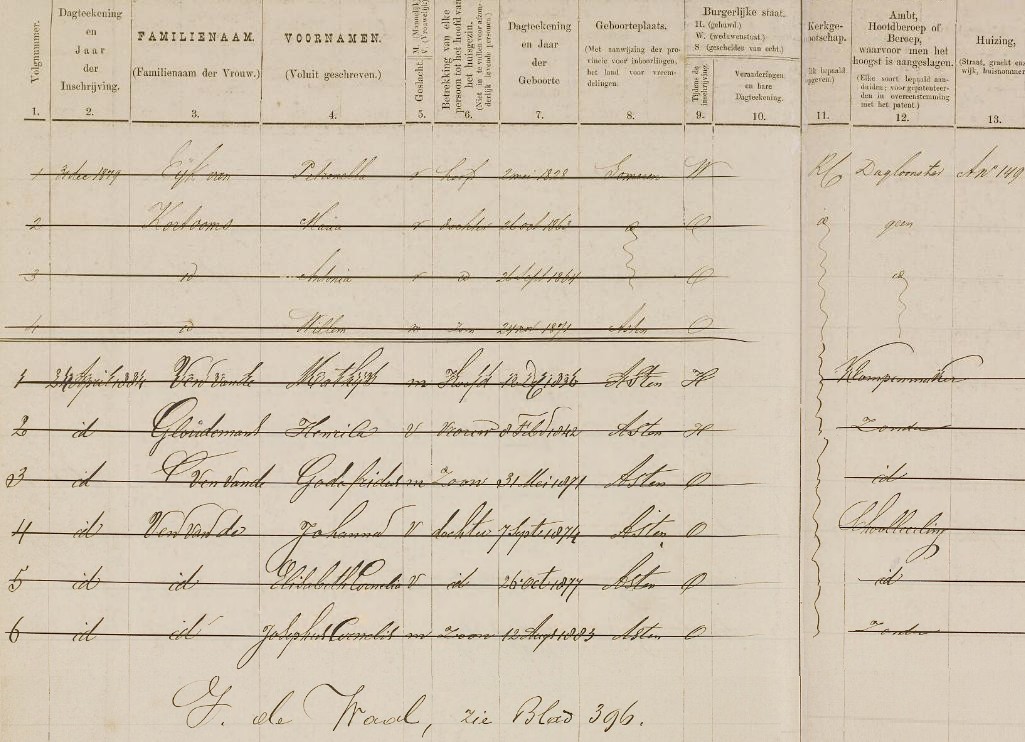 Volgnummer. Dagteekening en Jaar der Inschrijving. FAMILIENAAM. (Familienaam der Vrouw.) VOORNAMEN. (Voluit geschreven.) Geslacht. M. (Mannelijk) V. (Vrouwelijk) Betrekking van elke persoon tot het hoofd van het huisgezin. (Niet in te vullen voor afzonderlijk levende personen.) Dagteekening en Jaar der Geboorte Geboorteplaats. (Met aanwijzing der provincie voor inboorlingen, het land voor vreemdelingen. Burgerlijke staat. H. (gehuwd.) W. (weduwenstaat.) S (gescheiden van echt.) Tijdens de inschrijving. Veranderingen en hare Dagteekening. Kerkgenootschap. Ambt, Hoofdberoep of Beroep, waarvoor men het hoogst is aangeslagen. (Elke soort bepaald aanduiden; voor gepatenteerden in overeenstemming met het patent.) Huizing, (Straat, gracht en wijk, huisnummer
1. 2. 3. 4. 5. 6. 7. 8. 9. 10. 11. 12. 13.
1 30 dec 1879 Eijk van Petronella v hoof 2 mei 1828 Someren W RC Dagloonster A No 149
2 Kortooms Maria v dochter 26 oct 1863 id O id geen
3 id Antonia v id 26 Sept 1864 O id
4 id Willem m zoon 24 nov 1871 Asten O
1 April 1884 Ven vande Mathijs m Hoofd 1836 Asten H Klompenmaker
2 id Gloudemans Henrica V vrouw 8 Feb 1842 Asten H Zonder
3 id Ven vande Godefridus m Zoon 31 Mei 1871 Asten O id
4 id Ven van de Johanna V dochter 7 Septr 1874 Asten O Schoolleerling
5 id id Elisabeth Cornelia V id 26 Oct 1877 Asten O id
6 id id Josephus Cornelis m Zoon 12 Augs 1883 Asten O Zonder
J. de Waal, zie Blad 396.